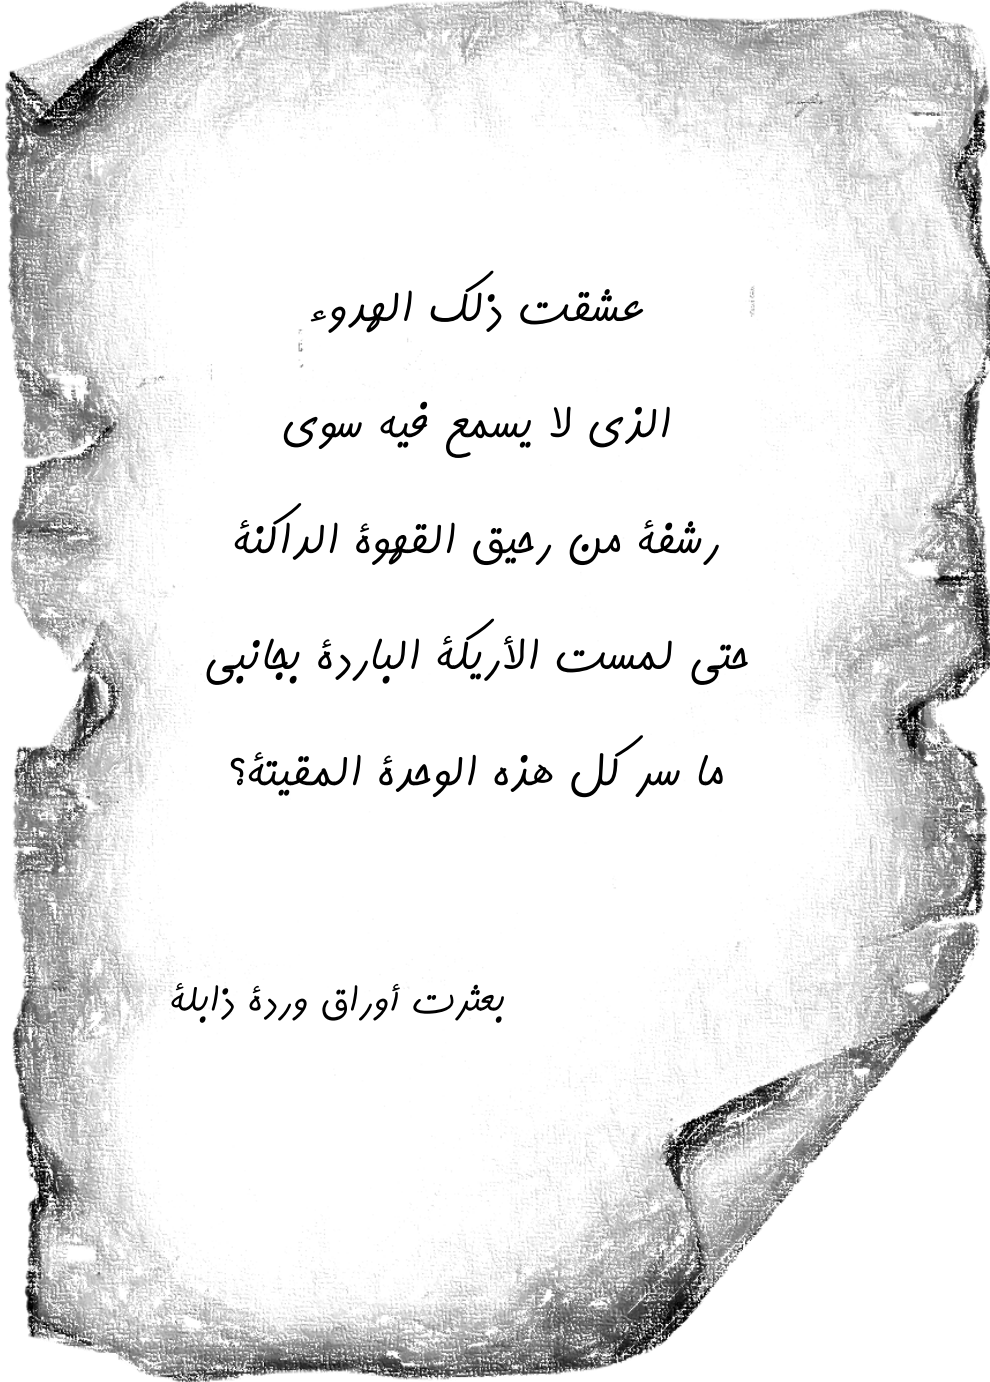 عشقت ذلك الهدوء
الذى لا يسمع فيه سوى
رشفة من رحيق القهوة الداكنة
حتى لمست الأريكة الباردة بجانبى
ما سر كل هذه الوحدة المقيتة؟
بعثرت أوراق وردة ذابلة